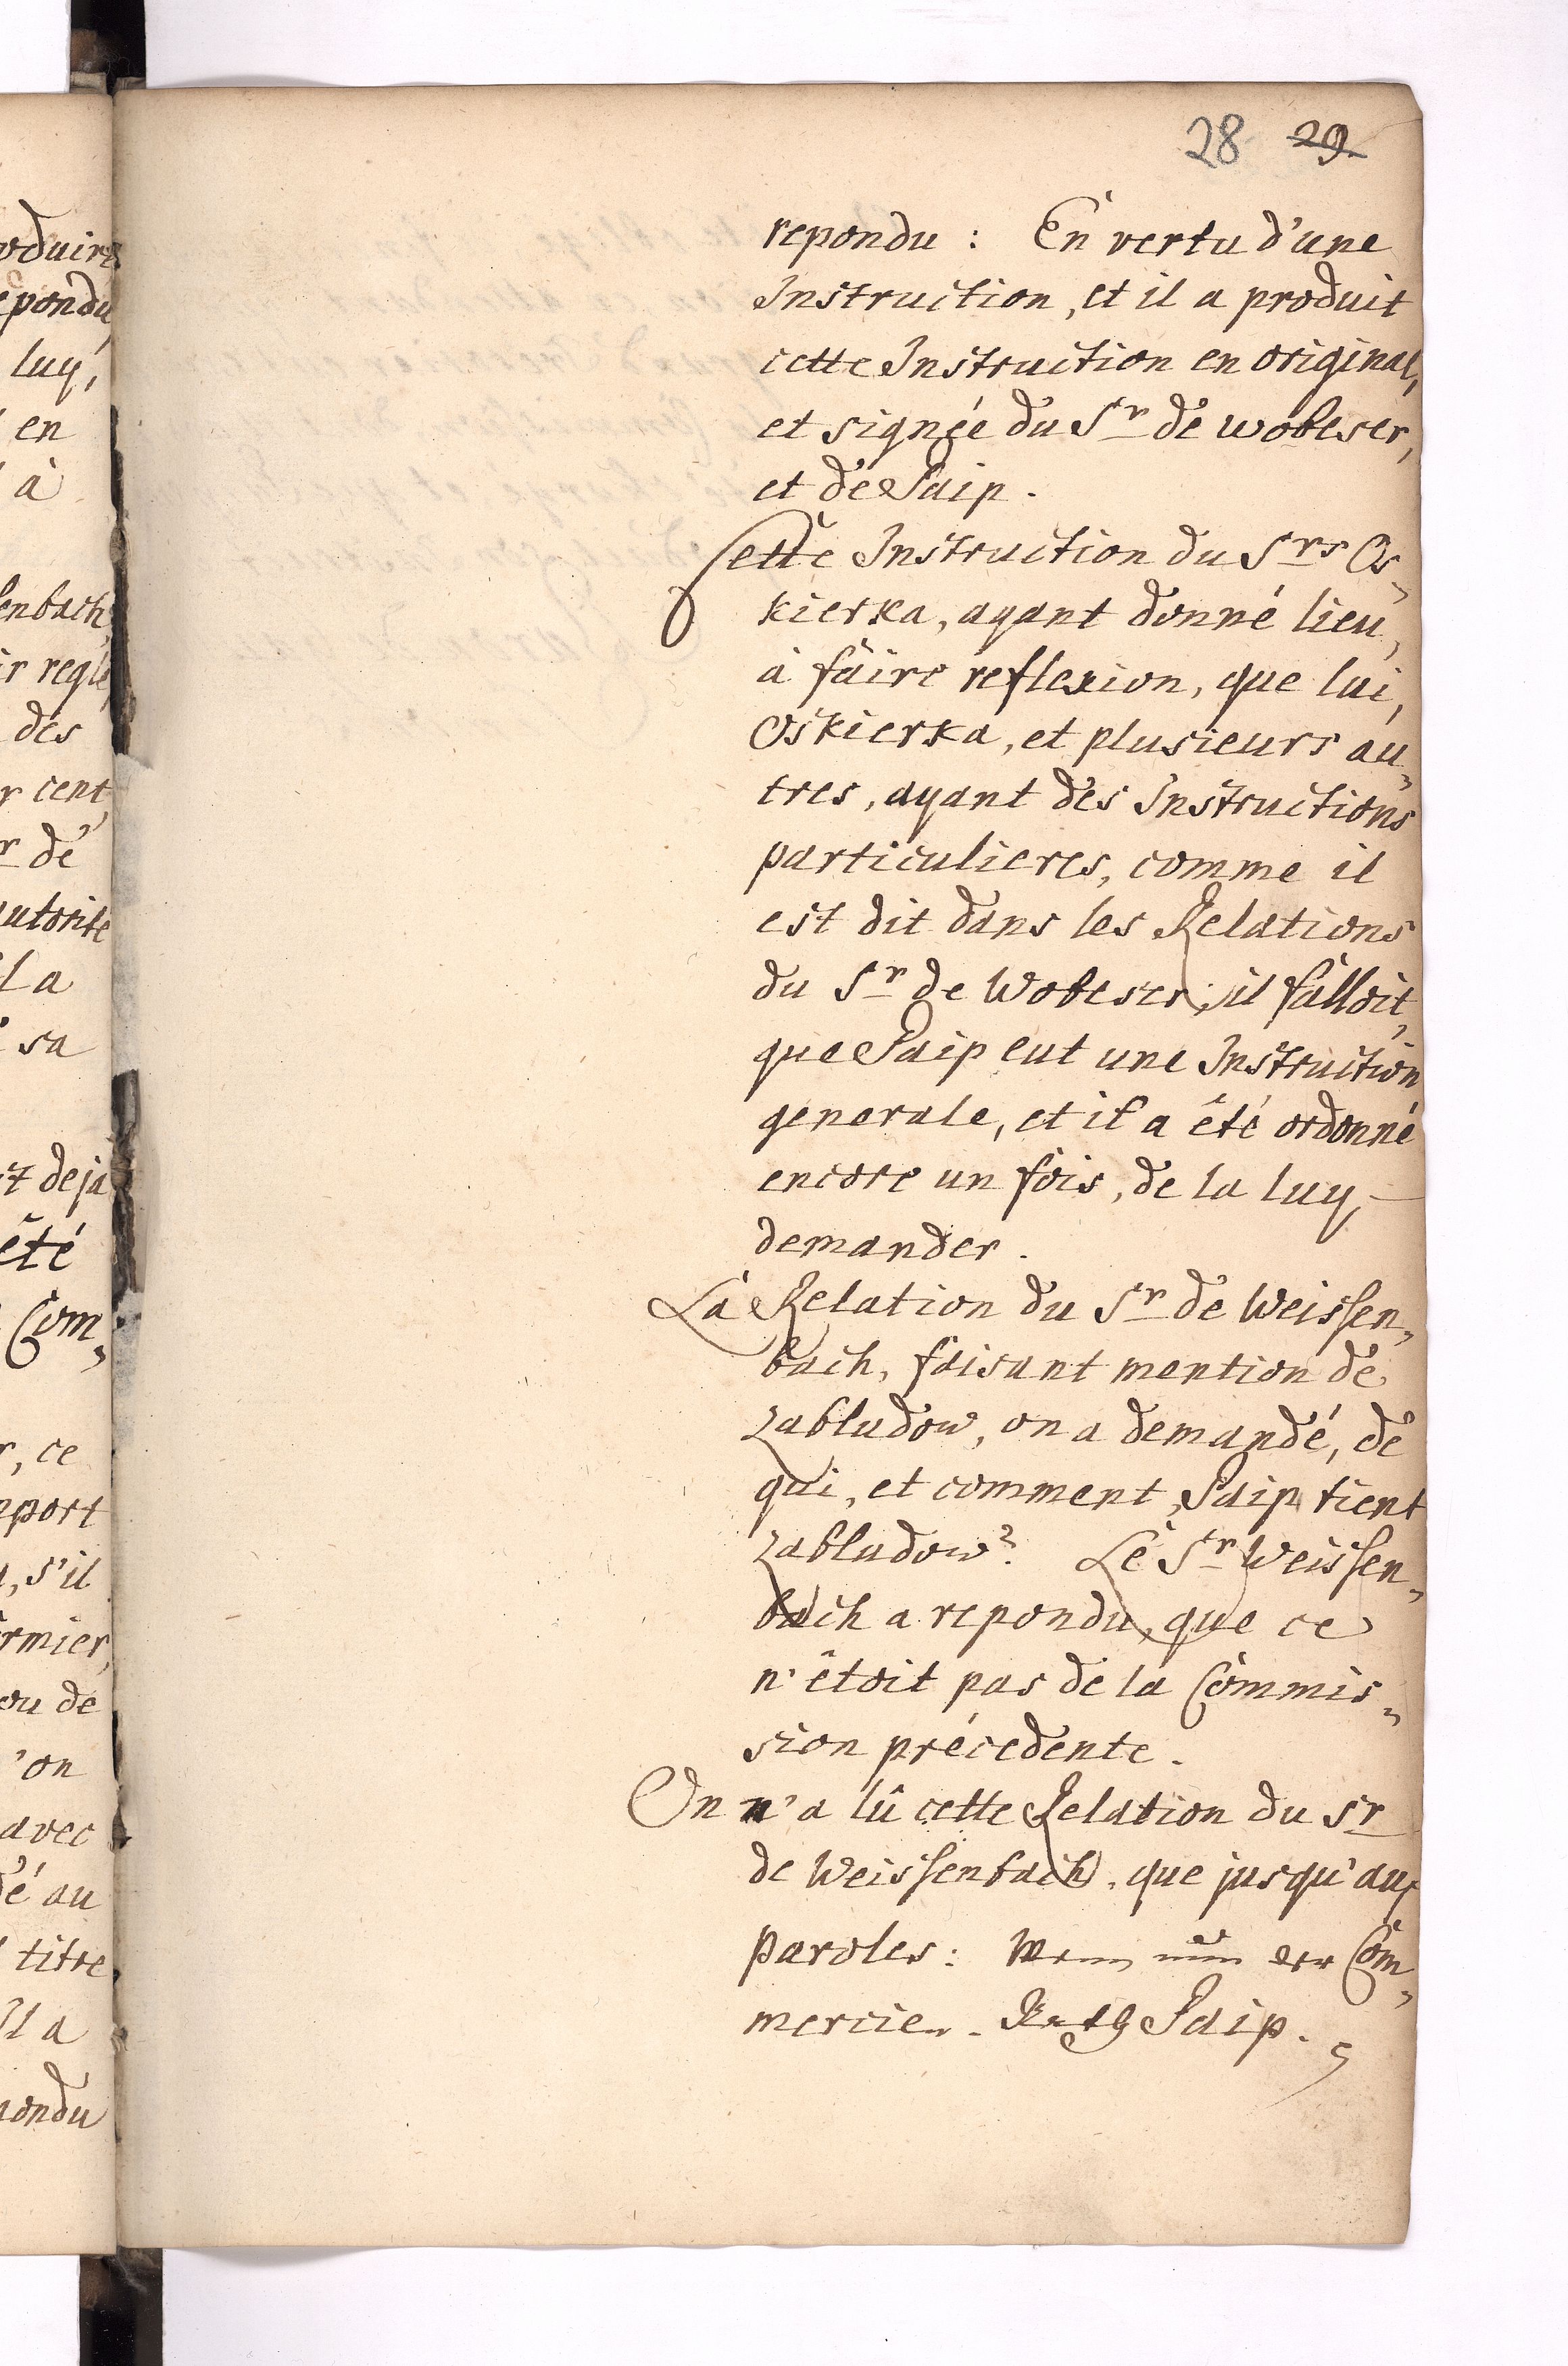 28 29.
repondu : En vertu d'une
Instruction, et il a produit
cette Instruction en original,
et signée du Sr de Wobeser,
et de Saip.
Cette Instruction du Srs Os„
kierka, ayant donné lieu,
à faire reflexion, que lui,
Oskierka, et plusieurs au„
tres, ayant des Instructions
particulieres, comme il
est dit dans les Relations
du Sr de Wobeser, il falloit,
que Saip eut une Instruction
generale, et il a êté ordonné
encore un fois, de la luy
demander.
La Relation du Sr de Weissen„
bach, faisant mention de
Zabludow, on a demandé, de
qui, et comment, Saip tient
Zabludow? Le Sr Weissen„
bach a repondu, que ce
n'êtoit pas de la Commis„
sion précedente.
On n'a lû cette Relation du Sr
de Weissenbach, que jusqu'aux
paroles: Wenn nun der Com„
mercien-Rath Saip.
oduire
epondu
luy,
en
à
senbach
ir reglé
des
r cent
r de
autorité
la
sa
t deja
êté
Com„
r, ce
eport
, s'il
ermier,
ou de
'on
avec
dé au
titre,
Il a
pondu